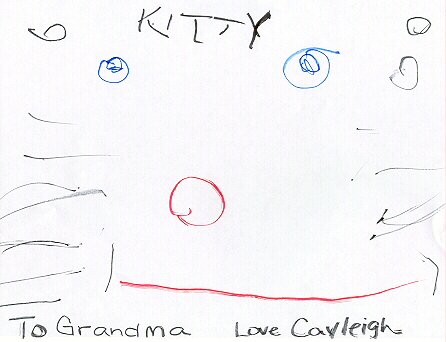 KITTY
To Grandma Love Cayleigh